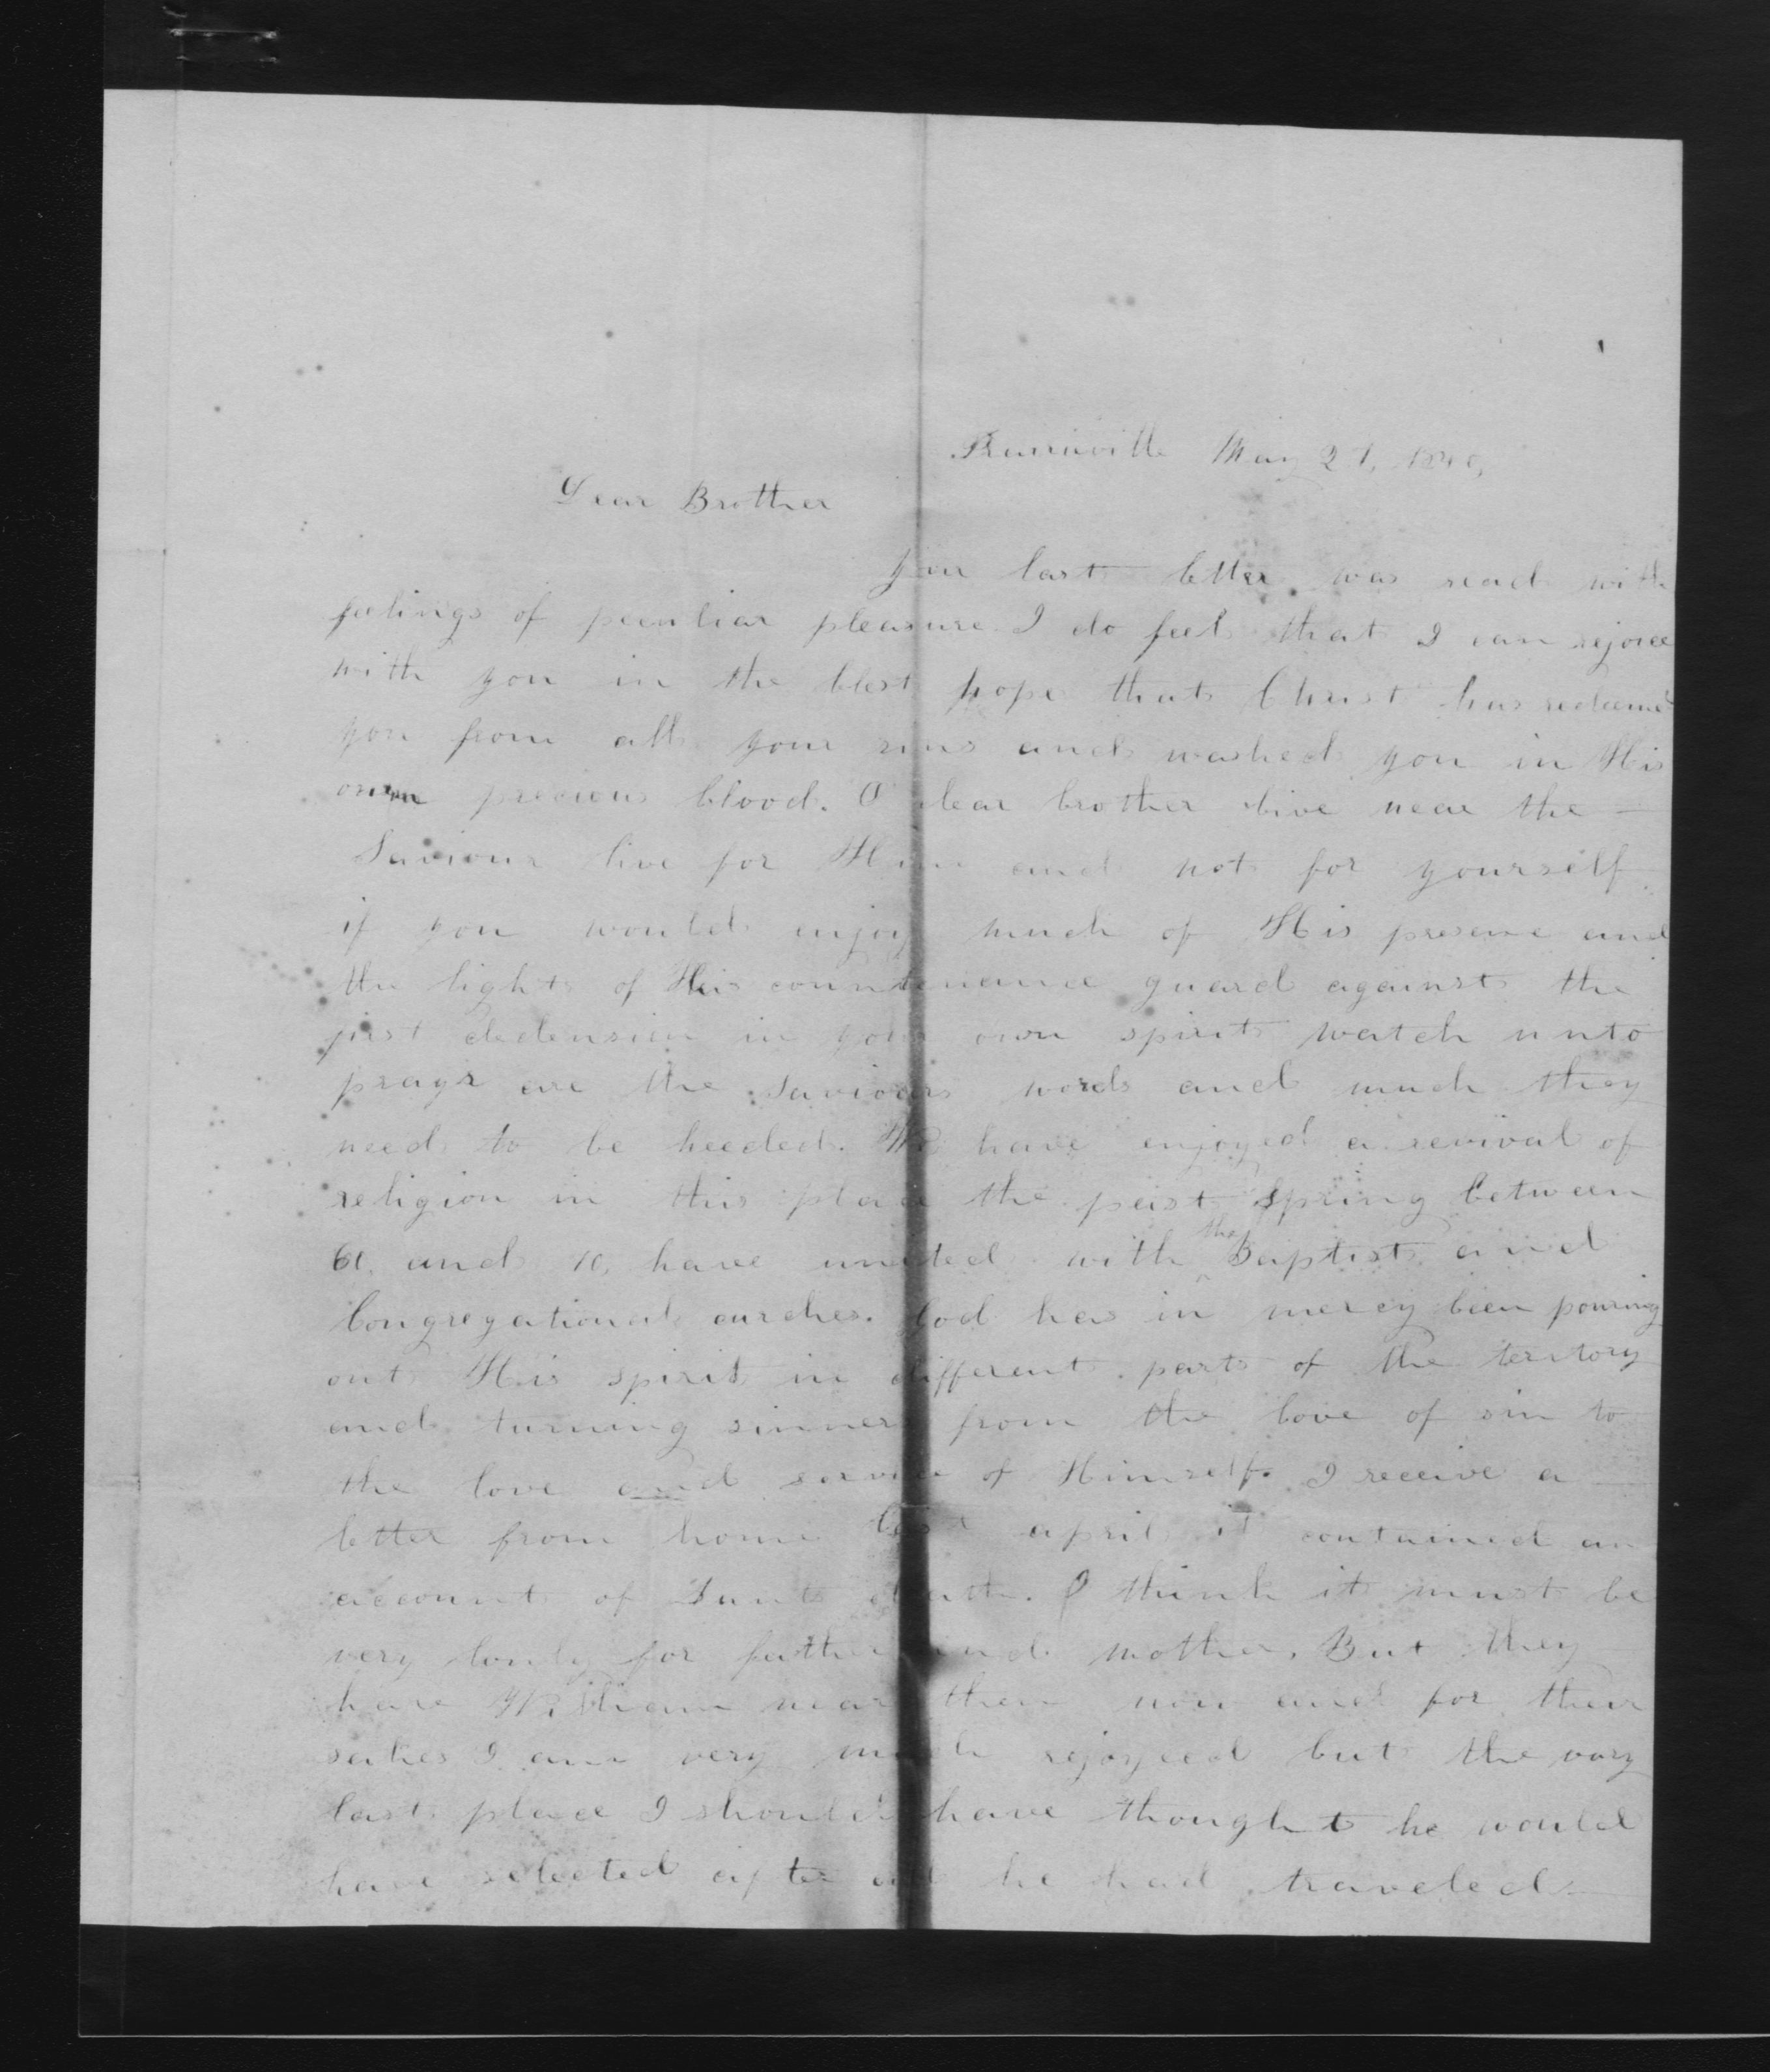 May 21, 1840,
Dear Brother
your last letter was read with
feelings of peculiar pleasure I do feel that I can rejoice
with you in the blest hope that Christ has redeemed
you from all your sins and washed you in His
own precious blood. O dear brother live near the
Saviour live for Him and not for yourself
if you would enjoy much of His presence and
the light of His countenance guard against the
first declension in your own spirit watch unto
prayr are the Saviours words and much they
need to be heeded. We have enjoyed a revival of
religion in this place the past Spring between
60 and 70, have united with the Baptist and
Congregational curches. God has in mercy been pouring
out His spirit in different parts of the territory
and turning sinners from the love of sin to
the love and service of Himself. I receive a
letter from home last april it contained an
account of Aunts death. I think it must be
very lonly for father and mother, But they
have William near them now and for their
sakes I am very much rejoyced but the vary
last place I should have thought he would
have selected after all he had traveled